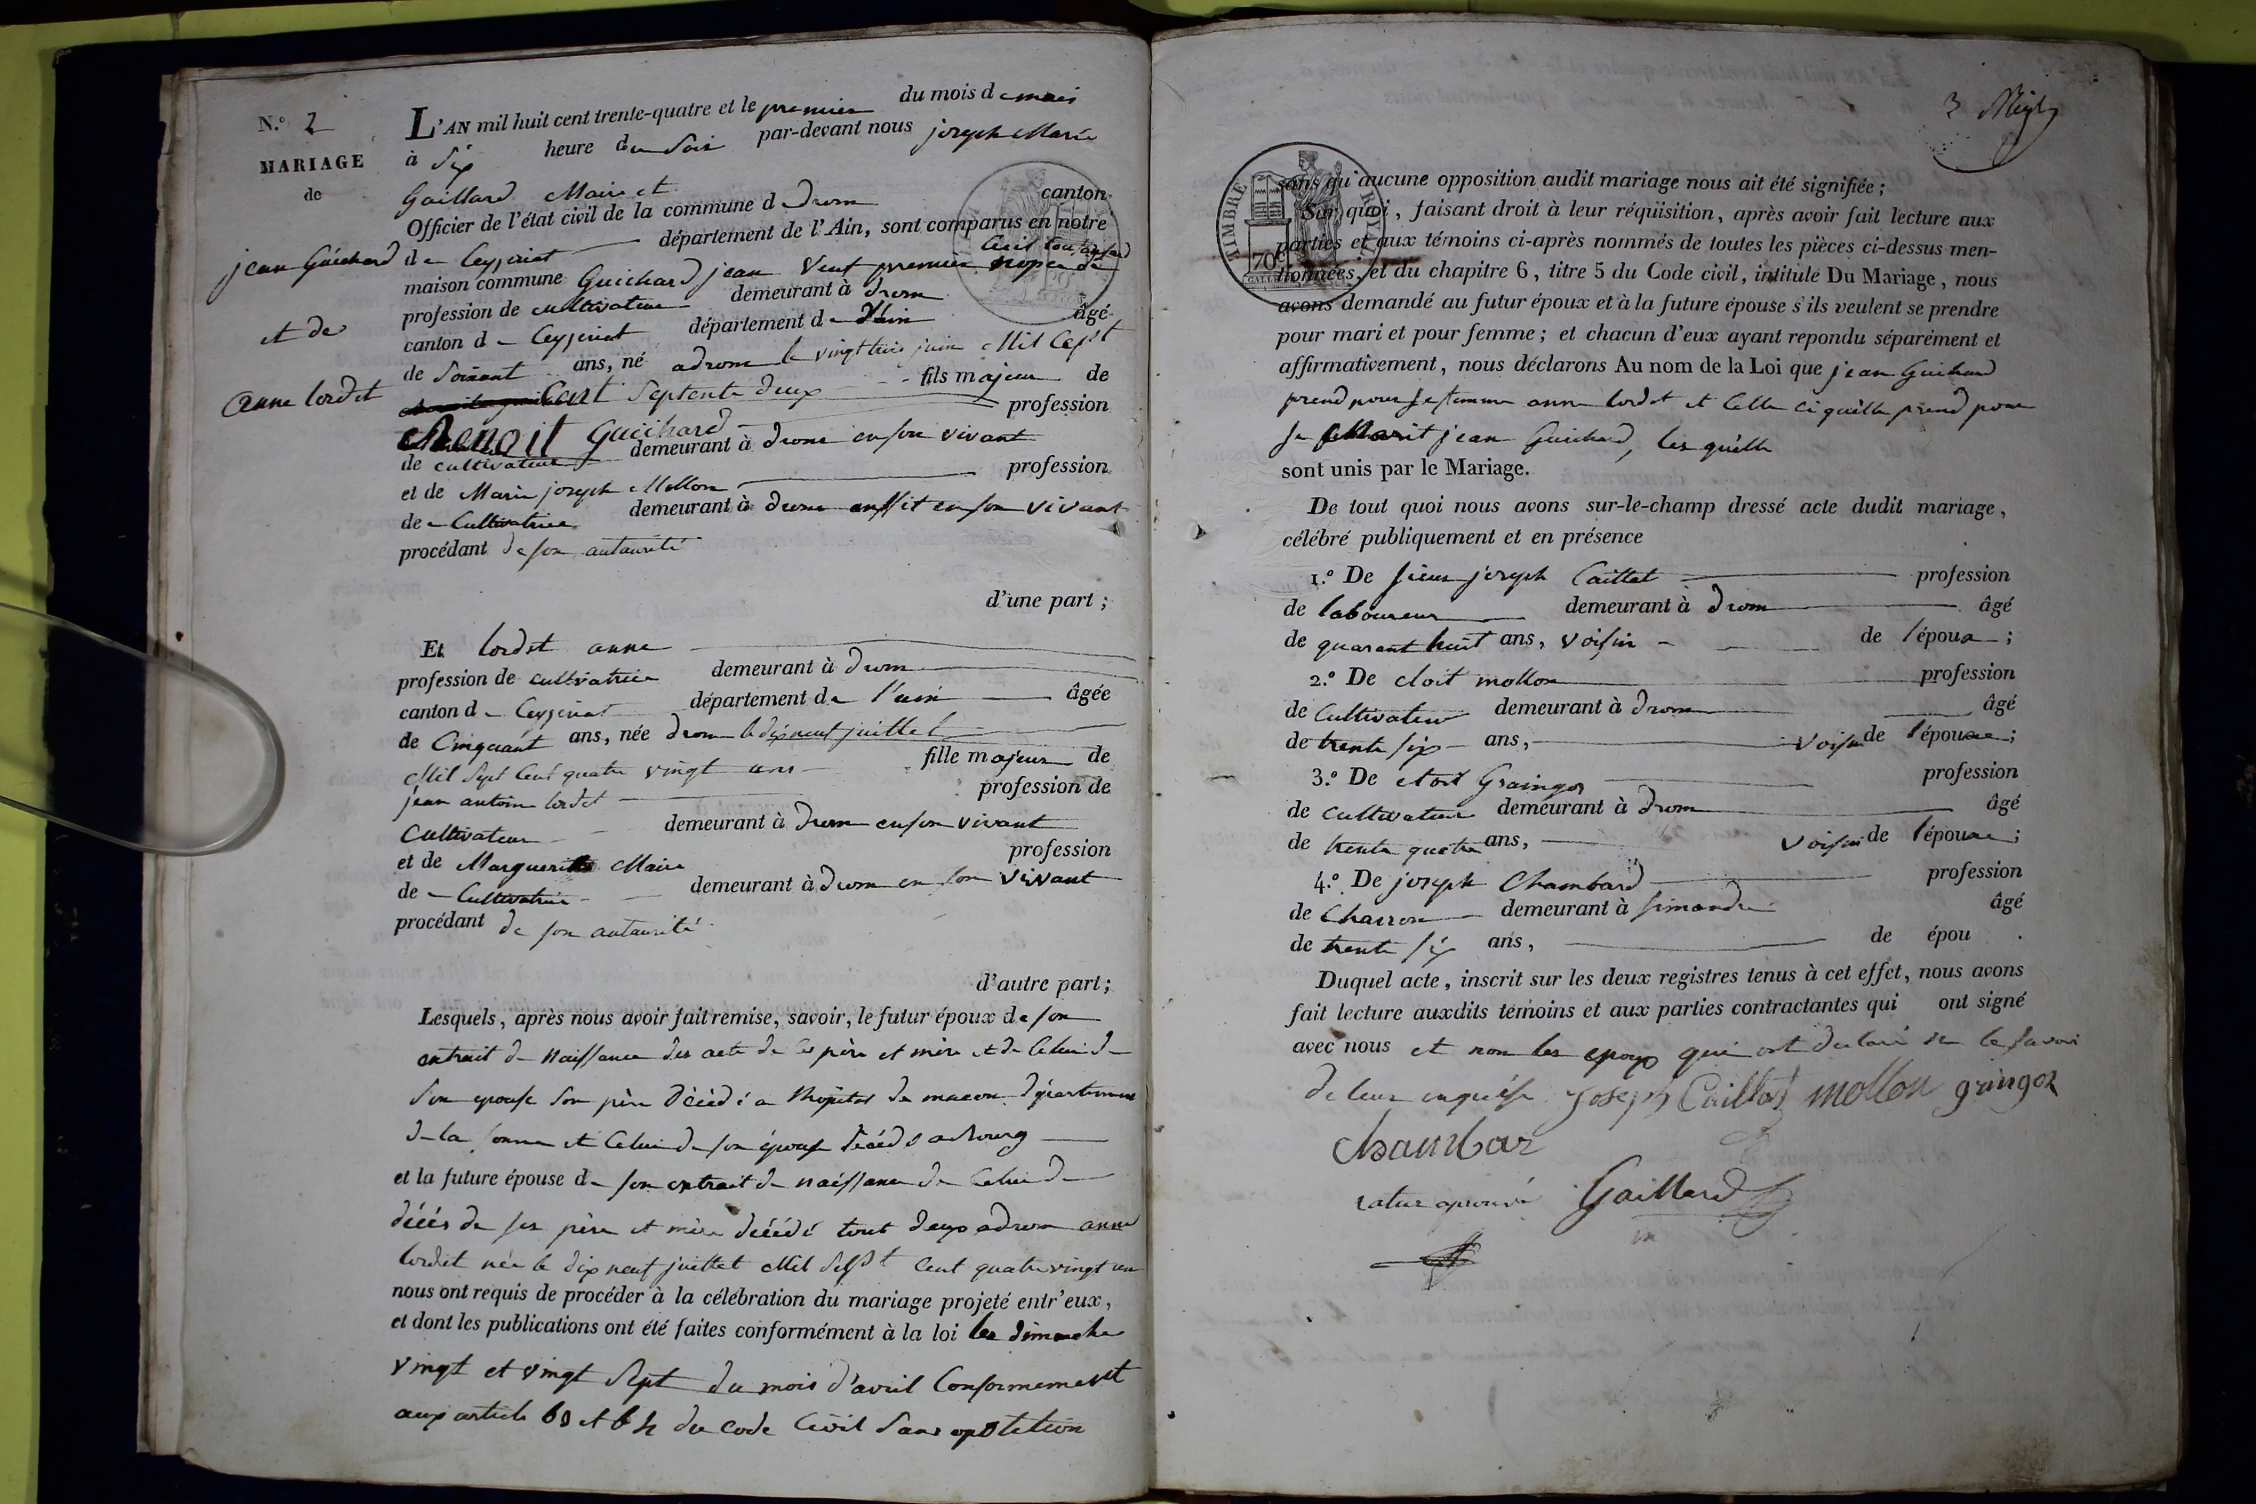 N.º 2
MARIAGE
de
jean Guichard
et de
anne lordet
L'AN mil huit cent trente-quatre et le premier du mois de mais
à Six heure du Soir par-devant nous joseph Marie
Gaillard Maire et
Officier de l'état civil de la commune d drom canton
de Ceyzeriat département de l'Ain, sont comparus en notre
maison commune Guichard jean Veuf premier
profession de cultivateur demeurant à drom
canton de Ceyzeriat département de l'ain âgé
de Soixent ans, né a drom le vingt trois juin Mil Cept
Cent Septente deux fils majeur de
Benoit Guichard profession
de cultivateur demeurant à drom en son vivant
et de Marie joseph Mollon profession
de Cultivatrice demeurant à drom aussit en son vivant
procédant de son autaurité
d'une part ;
Et lordet anne
profession de cultivatrice demeurant à drom
canton de Ceyzeriat département de l'ain âgée
de Cinquant ans, née drom le dix neuf juillet
Mil Sept Cent quatre vingt uns fille majeur de
jean antoine lordet profession de
Cultivateur demeurant à drom en son vivant
et de Marguerite Maire profession
de Cultivatrice demeurant à drom en son vivant
procédant de son autaurité
d'autre part ;
Lesquels, après nous avoir fait remise, savoir, le futur époux de son
extrait de naissance des acte de ces père et mère et de Celui de
Son epouse Son père décédé a l'hopital de macon département
de la Sonne et Celui de son épouse décéde a Bourg
et la future épouse de son extrait de naissance de Celui de
décés de ses père et mère décédé tout deux a drom anne
lordet née le dix neuf juillet Mil Sept Cent quatre vingt un
nous ont requis de procéder à la célébration du mariage projeté entr'eux,
et dont les publications ont été faites conformément à la loi les dimanche
vingt et vingt Sept du mois d'avril Conformement
aux article 63 et 64 du code Civil Sans opotition
3
TIMBRE ROYAL
70c
sans qu'aucune opposition audit mariage nous ait été signifiée ;
Sur quoi, faisant droit à leur réquisition, après avoir fait lecture aux
parties et aux témoins ci-après nommés de toutes les pièces ci-dessus men-
tionnées, et du chapitre 6, titre 5 du Code civil, intitulé Du Mariage, nous
avons demandé au futur époux et à la future épouse s'ils veulent se prendre
pour mari et pour femme ; et chacun d'eux ayant repondu séparément et
affirmativement, nous déclarons Au nom de la Loi que jean Guichard
prend pour Se femme anne lordet et Celle ci qu'elle prend pour
Se Marit jean Guichard, les quelle
sont unis par le Mariage.
De tout quoi nous avons sur-le-champ dressé acte dudit mariage,
célébré publiquement et en présence
1.º De Sieur joseph Caillat profession
de laboureur demeurant à drom âgé
de quarant huit ans, voisin de l'époux ;
2.º De Cloit mollon profession
de Cultivateur demeurant à drom âgé
de trente six ans, voisin de l'épouxe ;
3.º De Graingor profession
de cultivateur demeurant à drom âgé
de trente quatre ans, voisin de l'épouxe ;
4.º De joseph Chambard profession
de Charron demeurant à Simandre âgé
de trente six ans, de épou .
Duquel acte, inscrit sur les deux registres tenus à cet effet, nous avons
fait lecture auxdits témoins et aux parties contractantes qui ont signé
avec nous et non les epoux qui ont declaré ne le savoir
de leur enquise Joseph Caillat mollon gringoz
chambar
ratur aprouvé Gaillard